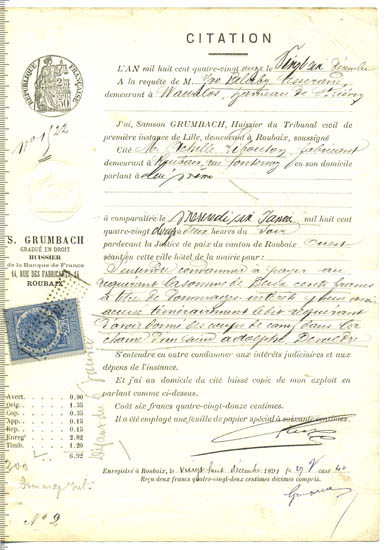 CITATION
RÉPUBLIQUE FRANÇAISE
L'AN mil huit cent quatre-vingt onze le Vingt deux décembre
A la requête de M.
demeurant à Wattrelos, hameau de
J'ai, Samson GRUMBACH, Huissier du Tribunal civil de
première instance de Lille, demeurant à Roubaix, soussigné
Cité M. Achille fabricant
demeurant à Roubaix, rue Fontenoy en son domicile
parlant à lui même
No 1122
à comparaître le mercredi six Janvier mil huit cent
quatre-vingt douze à deux heures du soir
pardevant la Justice de paix du canton de Roubaix Ouest
séant en cette ville hôtel de la mairie pour :
S'entendre condamner à payer au
requérant la somme de deux cents francs
à titre de dommages intérêts pour avoir
accusé témérairement le dit requérant
d'avoir donné des coups de dans la
chaîne d'un Adolphe
S'entendre en outre condamner aux intérêts judiciaires et aux
dépens de l'instance.
Et j'ai au domicile du cité laissé copie de mon exploit en
parlant comme ci-dessus.
Coût six francs quatre-vingt-douze centimes.
Il a été employé une feuille de papier spécial à soixante centimes.
Enregistré à Roubaix, le vingt huit décembre 1891 fo 29 V case
Reçu deux francs quatre-vingt-deux centimes décimes compris.
S. GRUMBACH
GRADUÉ EN DROIT
HUISSIER
de la Banque de France
14, RUE DES FABRICANTS, 14
ROUBAIX
Avert. 0.90
Orig. 1.35
Cop. 0.35
App. 0.15
Rep. 0.15
Enreg. 2.82
Timb. 1.20
6.92
300
No 2